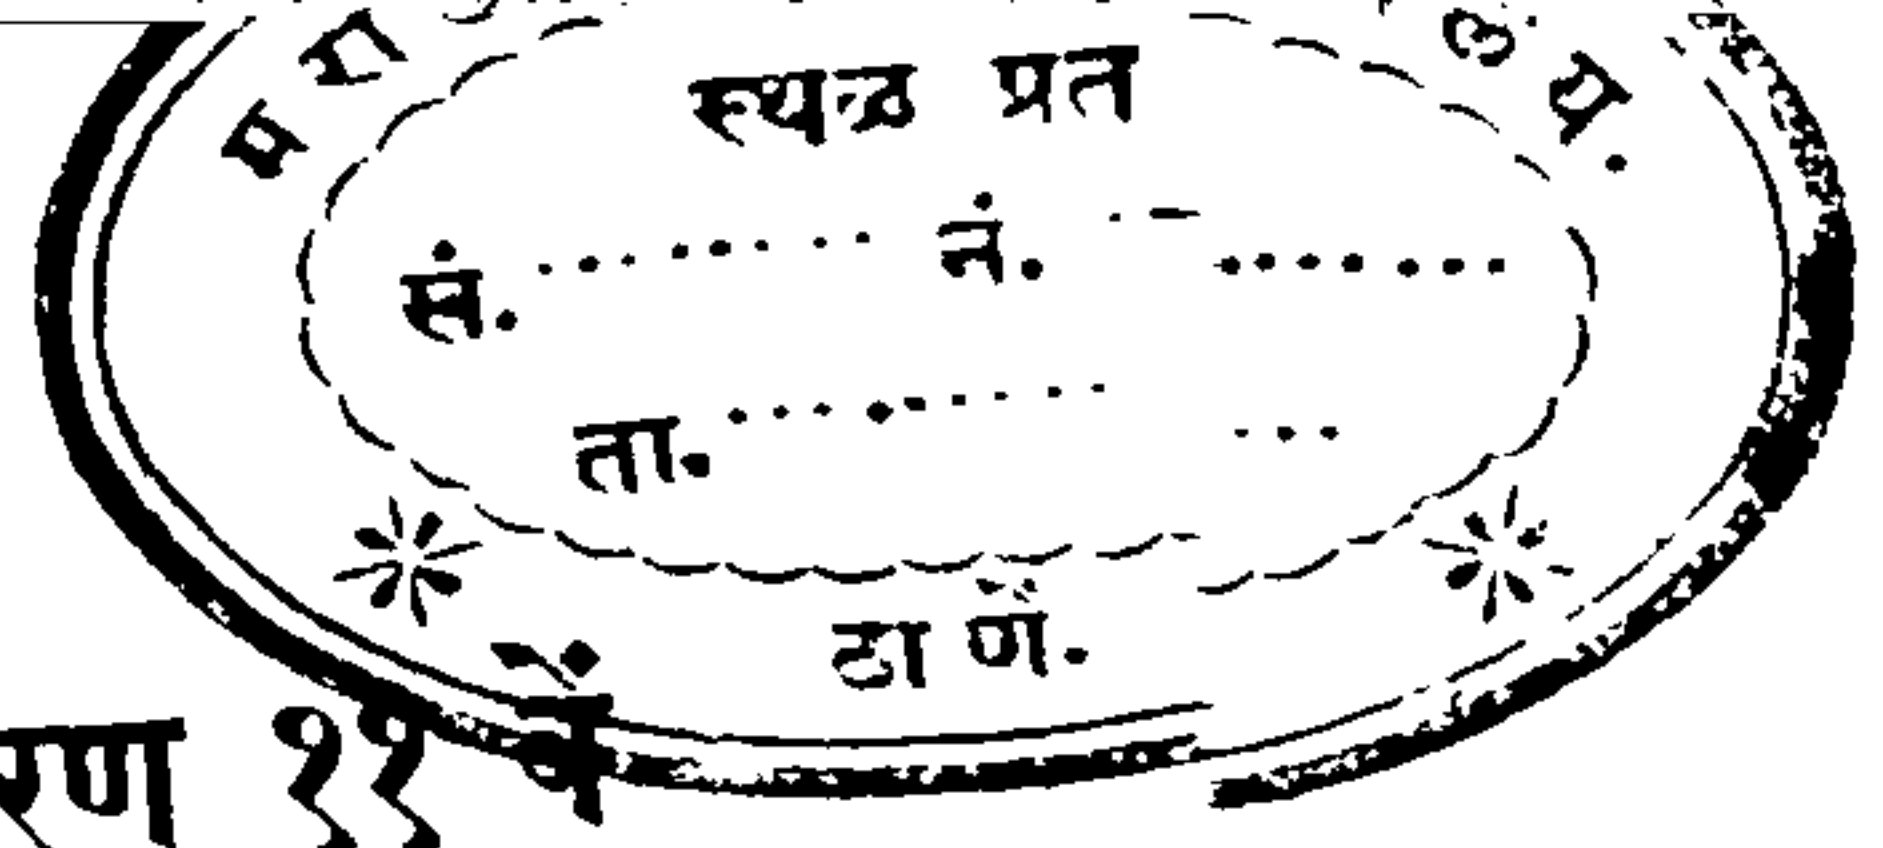 मरा
य.
स्थळ प्रत
सं. ......... नं. .......
ता. ......... ...
ठाणें.
रण ११ वें